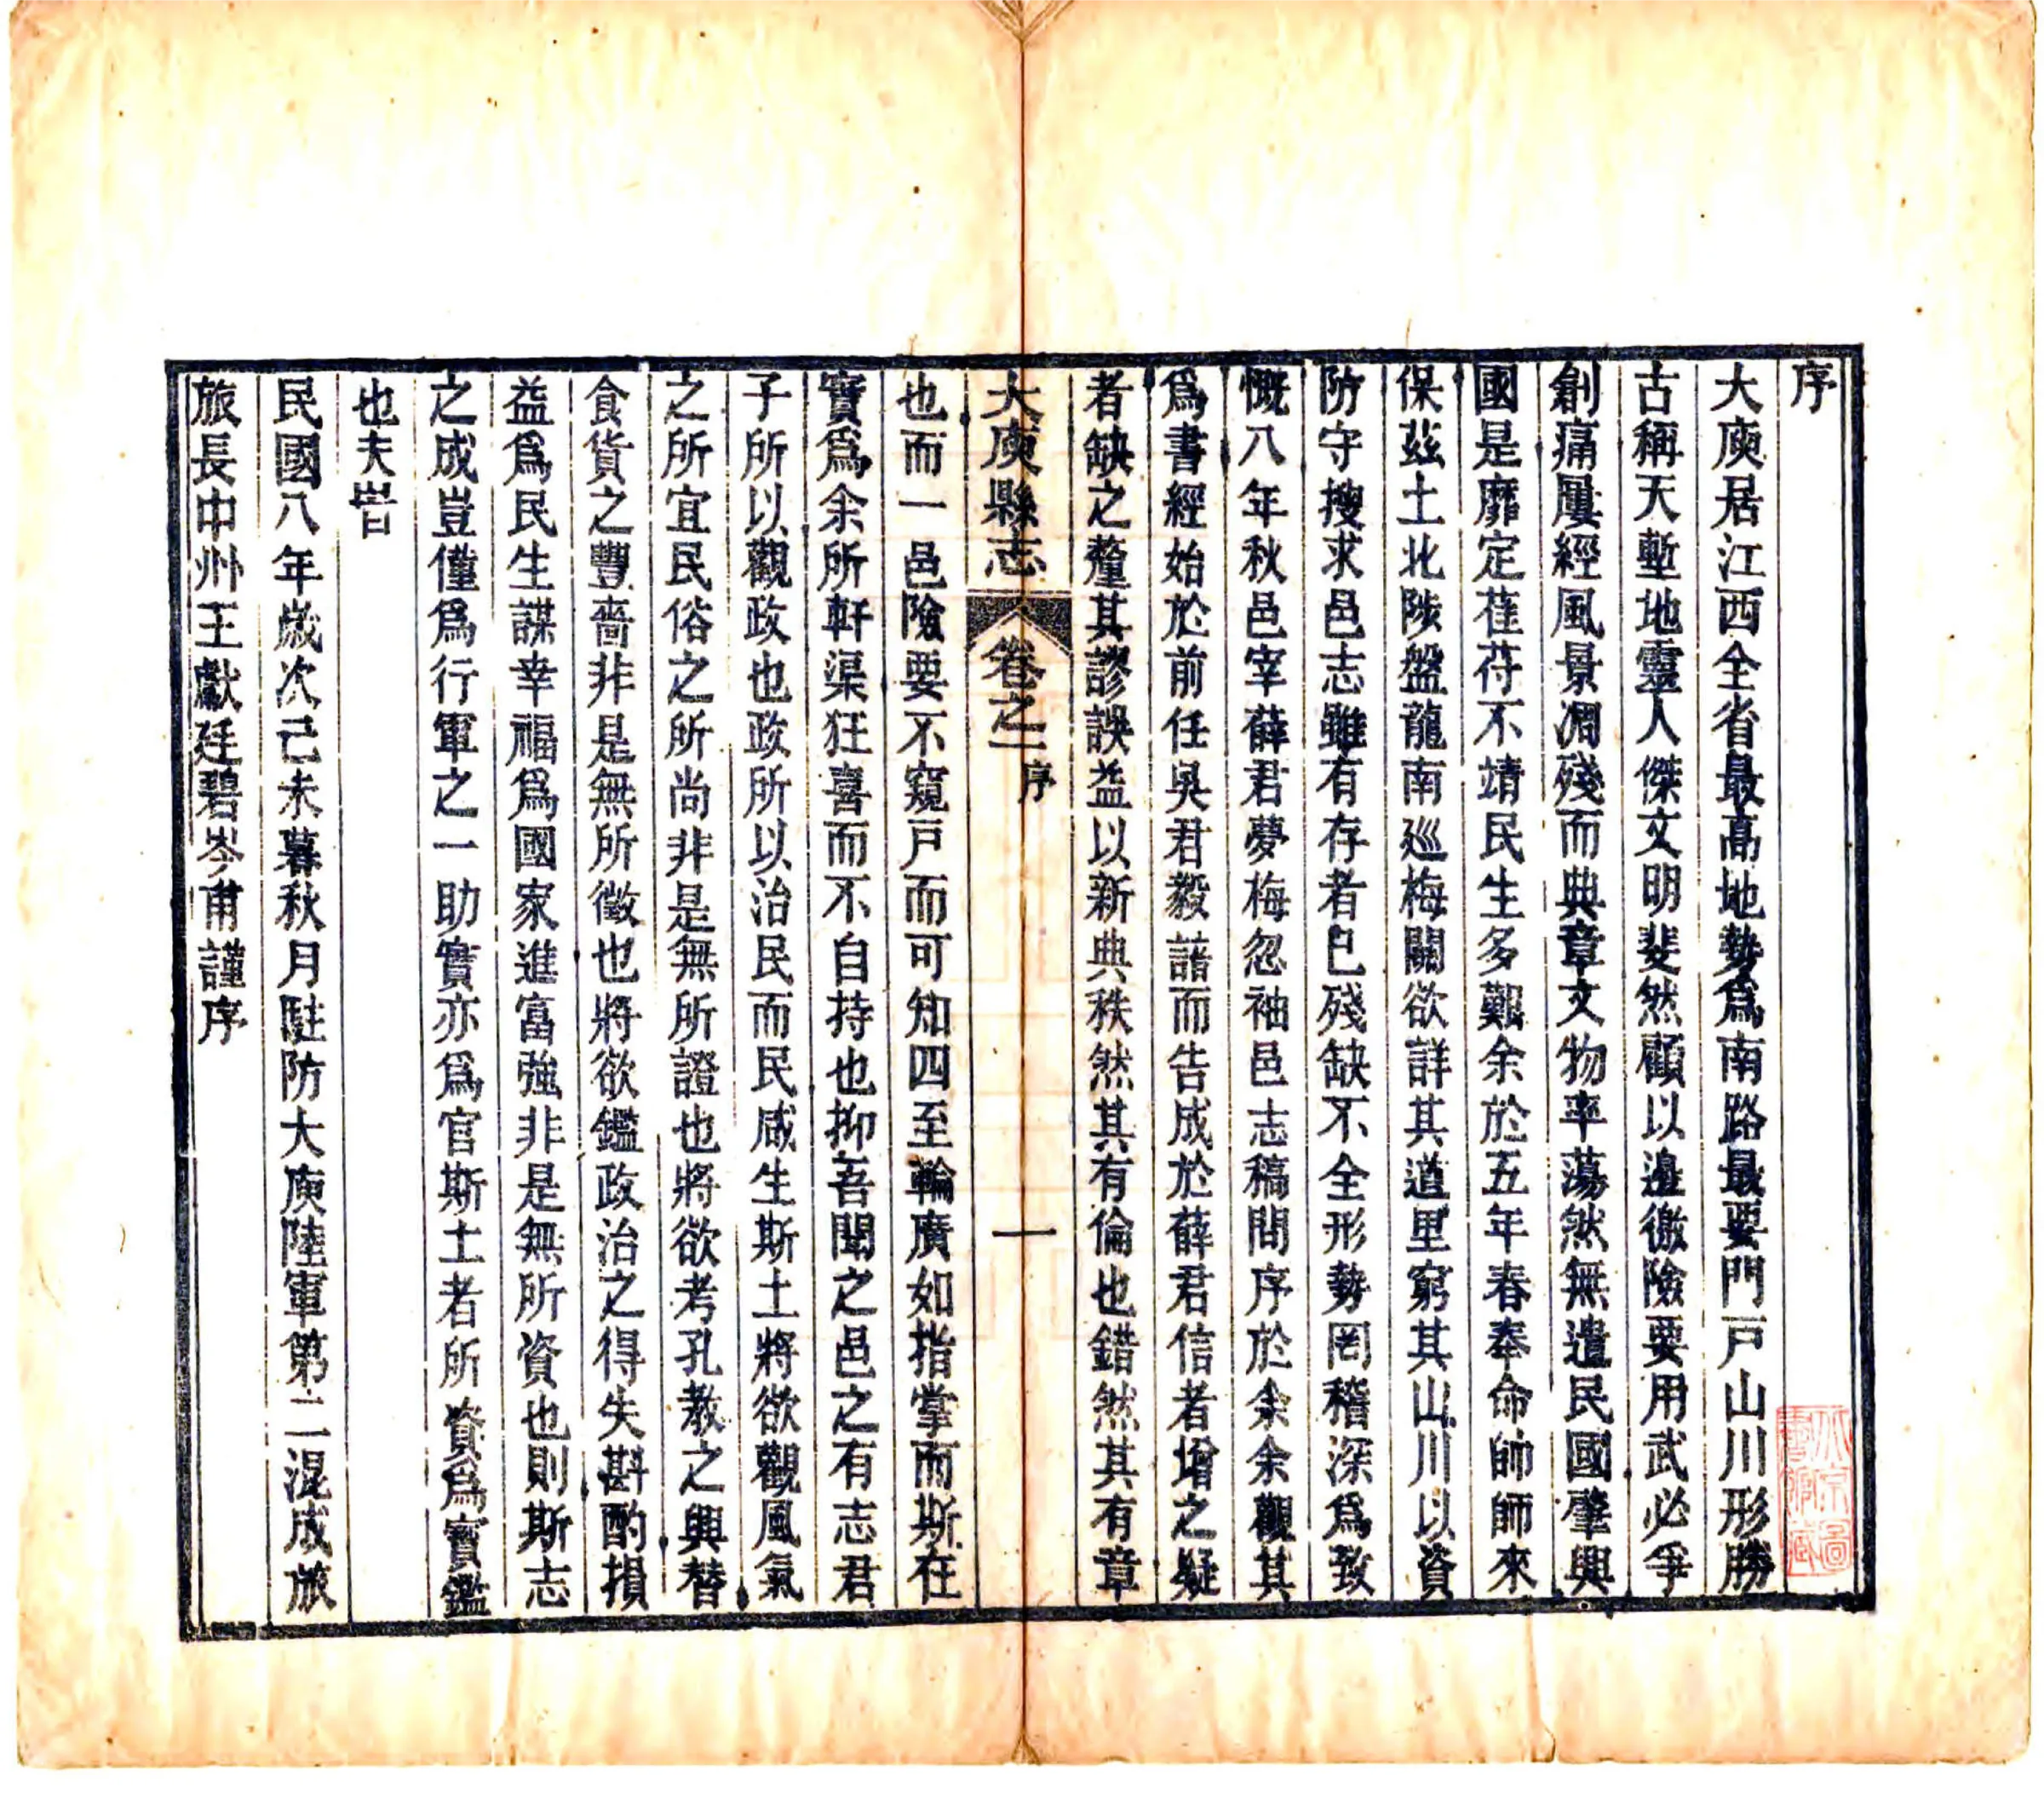 序
大庾居江西全省最高地勢爲南路最要門戸山川形勝
古稱天塹地靈人傑文明斐然顧以邊徼險要用武必爭
創痛屢經風景凋殘而典章文物率蕩然無遺民國肇興
國是靡定萑苻不靖民生多艱余於五年春奉命帥師來
保茲土北陟盤龍南巡梅關欲詳其道里窮其山川以資
防守搜求邑志雖有存者巳殘缺不全形勢罔稽深爲致
慨八年秋邑宰薛君夢梅忽袖邑志稿問序於余余觀其
爲書經始於前任吳君毅諳而告成於薛君信者增之疑
者缺之釐其謬誤益以新典秩然其有倫也錯然其有章
大庾縣志 卷之一 序 一
也而一邑險要不窺戸而可知四至輪廣如指掌而斯在
實爲余所軒渠狂喜而不自持也抑吾聞之邑之有志君
子所以觀政也政所以治民而民咸生斯土將欲觀風氣
之所宜民俗之所尚非是無所證也將欲考孔教之興替
食貨之豐嗇非是無所徵也將欲鑑政治之得失斟酌損
益爲民生謀幸福爲國家進富強非是無所資也則斯志
之成豈僅爲行軍之一助實亦爲官斯土者所資爲寶鑑
也夫旹
民國八年歲次己未暮秋月駐防大庾陸軍第二混成旅
旅長中州王獻廷碧岑甫謹序